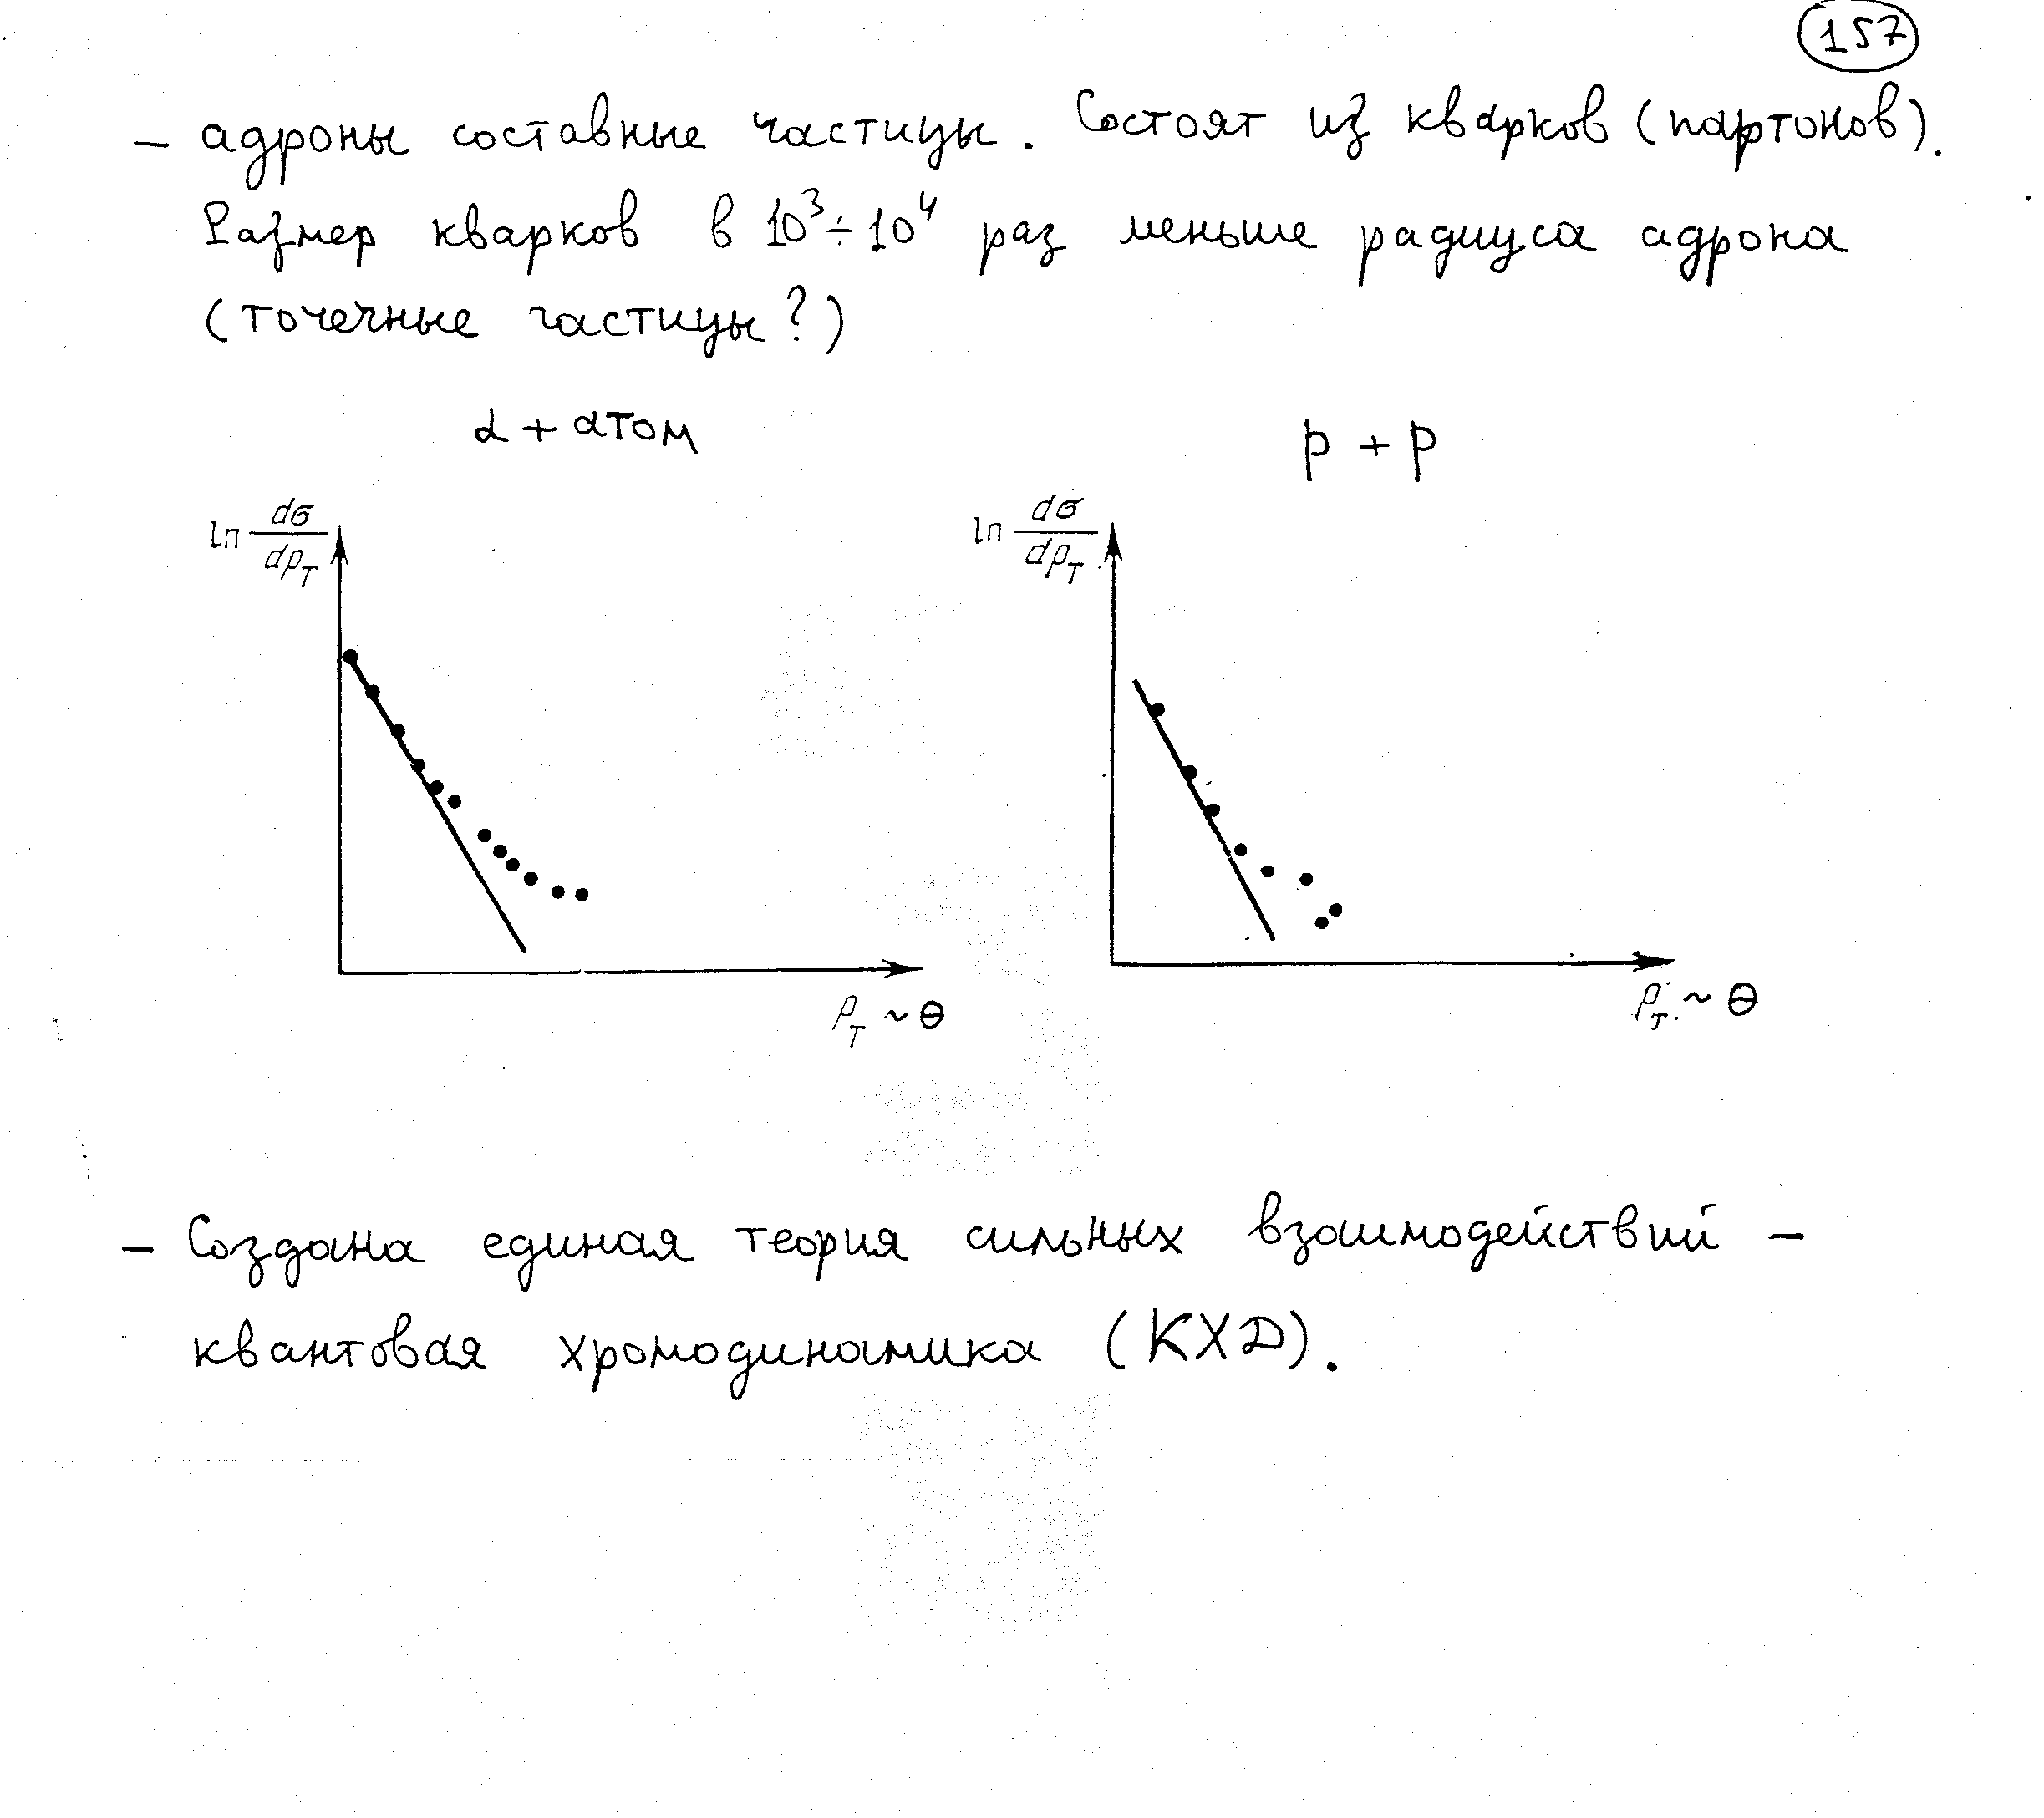 157
- адроны составные частицы. Состоят из кварков (партонов).
Размер кварков в 10³÷10⁴ раз меньше радиуса адрона
(точечные частицы?)
α + атом
p + p
ln dσ/dp_T
ln dσ/dp_T
p_T ~ θ
p_T ~ θ
- Создана единая теория сильных взаимодействий -
квантовая хромодинамика (КХД).